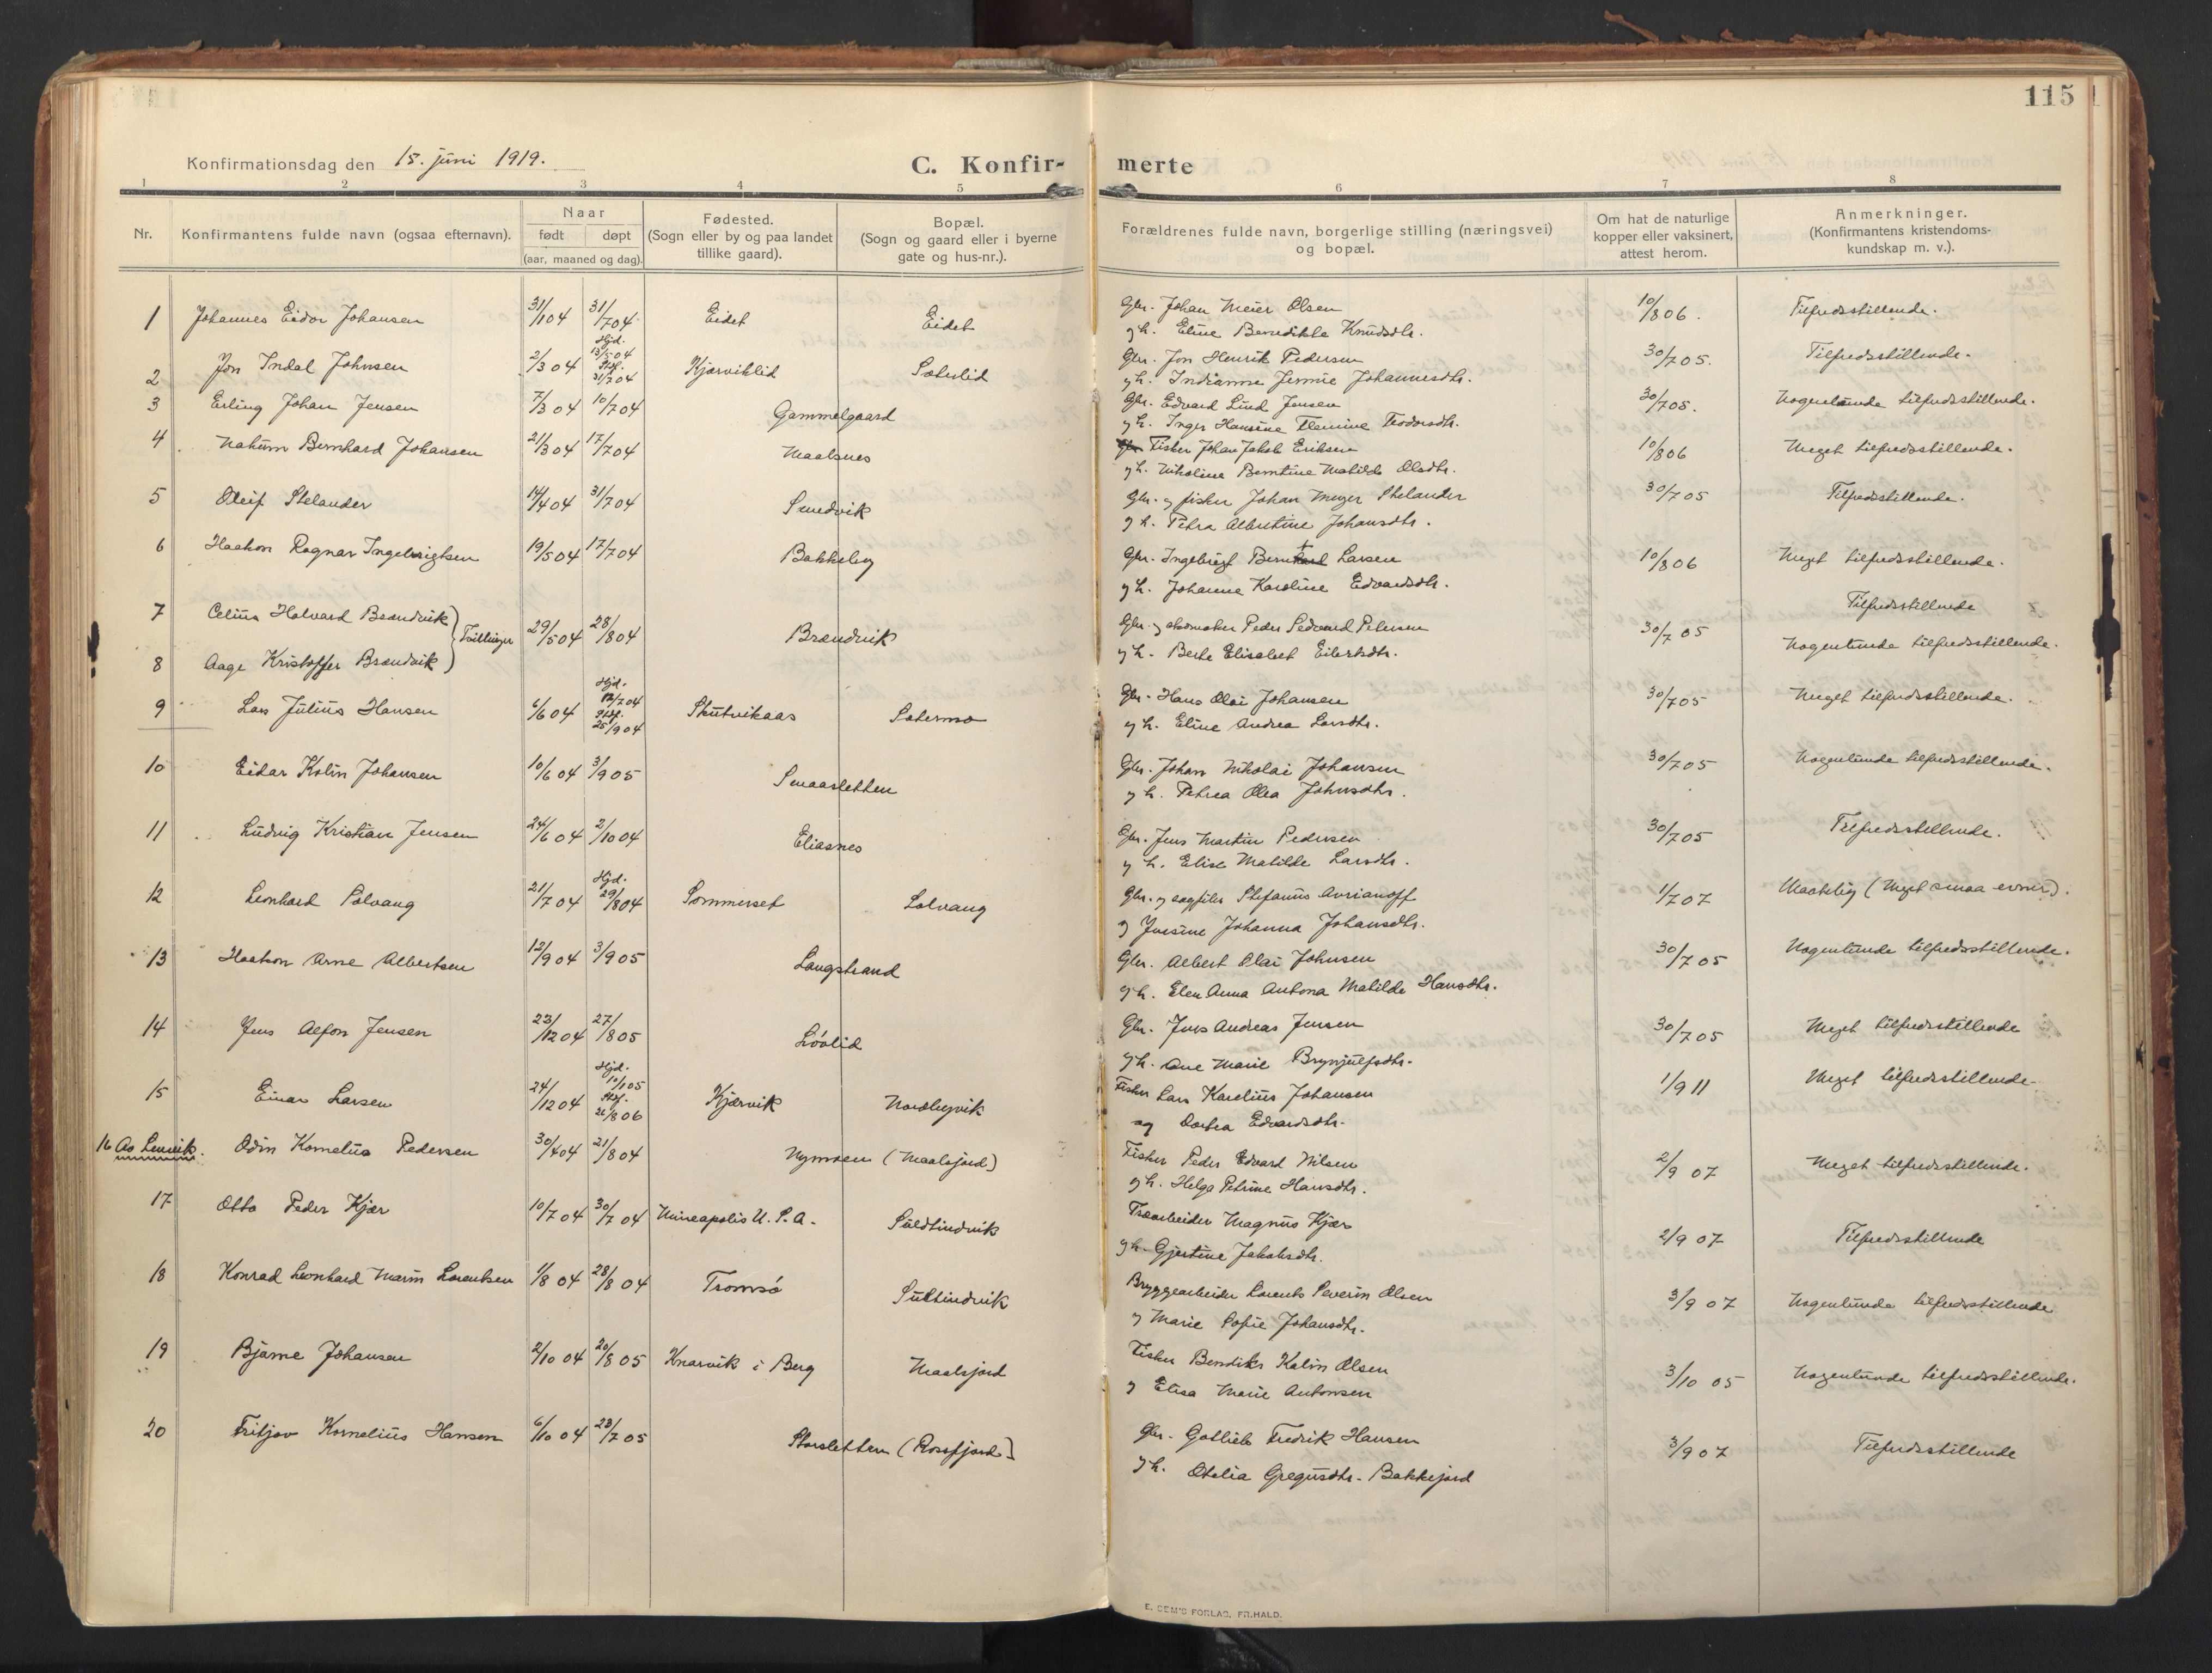 115
Konfirmationsdag den 15. juni 1919.
C. Konfir-merte
1 2 3 4 5 6 7 8
Nr.
Konfirmantens fulde navn (ogsaa efternavn).
Naar
født
døpt
(aar, maaned og dag).
Fødested.
(Sogn eller by og paa landet
tillike gaard).
Bopæl.
(Sogn og gaard eller i byerne
gate og hus-nr.).
Forældrenes fulde navn, borgerlige stilling (næringsvei)
og bopæl.
Om hat de naturlige
kopper eller vaksinert,
attest herom.
Anmerkninger.
(Konfirmantens kristendoms-
kundskap m. v.).
1 Johannes Eidor Johansen 31/1 04 31/7 04 Eidet Eidet Gbr. Johan Meier Olsen 10/8 06. Tilfredsstillende.
og h. Eline Benedikte Knudsdtr.
2 Jon Indal Johnsen 2/3 04 Hjd. 13/5 04 Stf. 31/7 04 Kjærviklid Sæterlid Gbr. Jon Henrik Pedersen 30/7 05. Tilfredsstillende.
og h. Indianna Jennie Johannesdtr.
3 Erling Johan Jensen 7/3 04 10/7 04 Gammelgaard Gbr. Edvard Lind Jensen 30/7 05. Nogenlunde tilfredsstillende.
og h. Inger Hansine Flemine Teodorsdtr.
4 Nahum Bernhard Johansen 21/3 04 17/7 04 Maalsnes Fisker Johan Jakob Eriksen 10/8 06 Meget tilfredsstillende.
og h. Nikoline Berntine Matilde Olsdtr.
5 Oleif Stelander 14/4 04 31/7 04 Smedvik Gbr. og fisker Johan Meyer Stelander 30/7 05 Tilfredsstillende.
og h. Petra Albertine Johansdtr.
6 Haakon Ragnar Ingebrigtsen 19/5 04 17/7 04 Bakkeby Gbr. Ingebrigt Bernt Larsen 10/8 06 Meget tilfredsstillende.
og h. Johanna Karoline Edvardsdtr.
7 Celius Halvard Brændvik Tvillinger 29/5 04 28/8 04 Brændvik Gbr. og skomaker Peder Sedvard Petersen 30/7 05 Tilfredsstillende
8 Aage Kristoffer Brændvik og h. Berte Elisabet Eilertsdtr. Nogenlunde tilfredsstillende.
9 Lars Julius Hansen 6/6 04 Hjd. 12/7 04 Stf. 25/9 04 Skutvikaas Sætermo Gbr. Hans Olai Johansen 30/7 05 Meget tilfredsstillende.
og h. Eline Andrea Larsdtr.
10 Eidar Kolin Johansen 10/6 04 3/9 05 Smaasletten Gbr. Johan Nikolai Johansen 30/7 05 Nogenlunde tilfredsstillende.
og h. Petrea Olea Johnsdtr.
11 Ludvig Kristian Jensen 24/6 04 2/10 04 Eliasnes Gbr. Jens Martin Pedersen 30/7 05 Tilfredsstillende.
og h. Elise Matilde Larsdtr.
12 Leonhard Solvang 21/7 04 Hjd. 29/8 04 Sommerset Solvang Gbr. og sagfiler Stefanus Avrianoff 1/7 07 Maatelig (Meget smaa evner).
og Jensine Johanna Johansdtr.
13 Haakon Arne Albertsen 12/9 04 3/9 05 Langstrand Gbr. Albert Olai Johnsen 30/7 05 Nogenlunde tilfredsstillende.
og h. Elen Anna Antona Matilde Hansdtr.
14 Jens Alfon Jensen 23/12 04 27/8 05 Løvlid Gbr. Jens Andreas Jensen 30/7 05 Meget tilfredsstillende
og h. Ane Marie Brynjulfsdtr.
15 Einar Larsen 24/12 04 Hjd. 10/1 05 Stf. 26/8 06 Kjærvik Nordbyvik Fisker Lars Karelius Johansen 1/9 11 Meget tilfredsstillende.
og Dortea Edvardsdtr.
16 Av Lenvik. Odin Kornelius Pedersen 30/4 04 21/8 04 Nymoen (Maalsjord) Fisker Peder Edvard Nilsen 2/9 07 Meget tilfredsstillende.
og h. Helga Petrine Hansdtr.
17 Otto Peder Kjær 10/7 04 30/7 04 Mineapolis U. S. A. Sultindvik Træarbeider Magnus Kjær 2/9 07 Tilfredsstillende
og h. Gjertine Jakobsdtr.
18 Konrad Leonhard Marin Lorentsen 1/8 04 28/8 04 Tromsø Sultindvik Bryggearbeider Lorents Severin Olsen 3/9 07 Nogenlunde tilfredsstillende
og Marie Sofie Johansdtr.
19 Bjarne Johansen 2/10 04 20/8 05 Knarvik i Berg Maalsjord Fisker Bendiks Kolin Olsen 3/10 05 Nogenlunde tilfredsstillende.
og Elisa Marie Antonsen
20 Fritjov Kornelius Hansen 6/10 04 23/7 05 Storsletten (Rossfjord) Gbr. Gotlieb Fredrik Hansen 3/9 07 Tilfredsstillende
og h. Otelia Gregusdtr. Bakkejord
E. SEM'S FORLAG, FR.HALD.